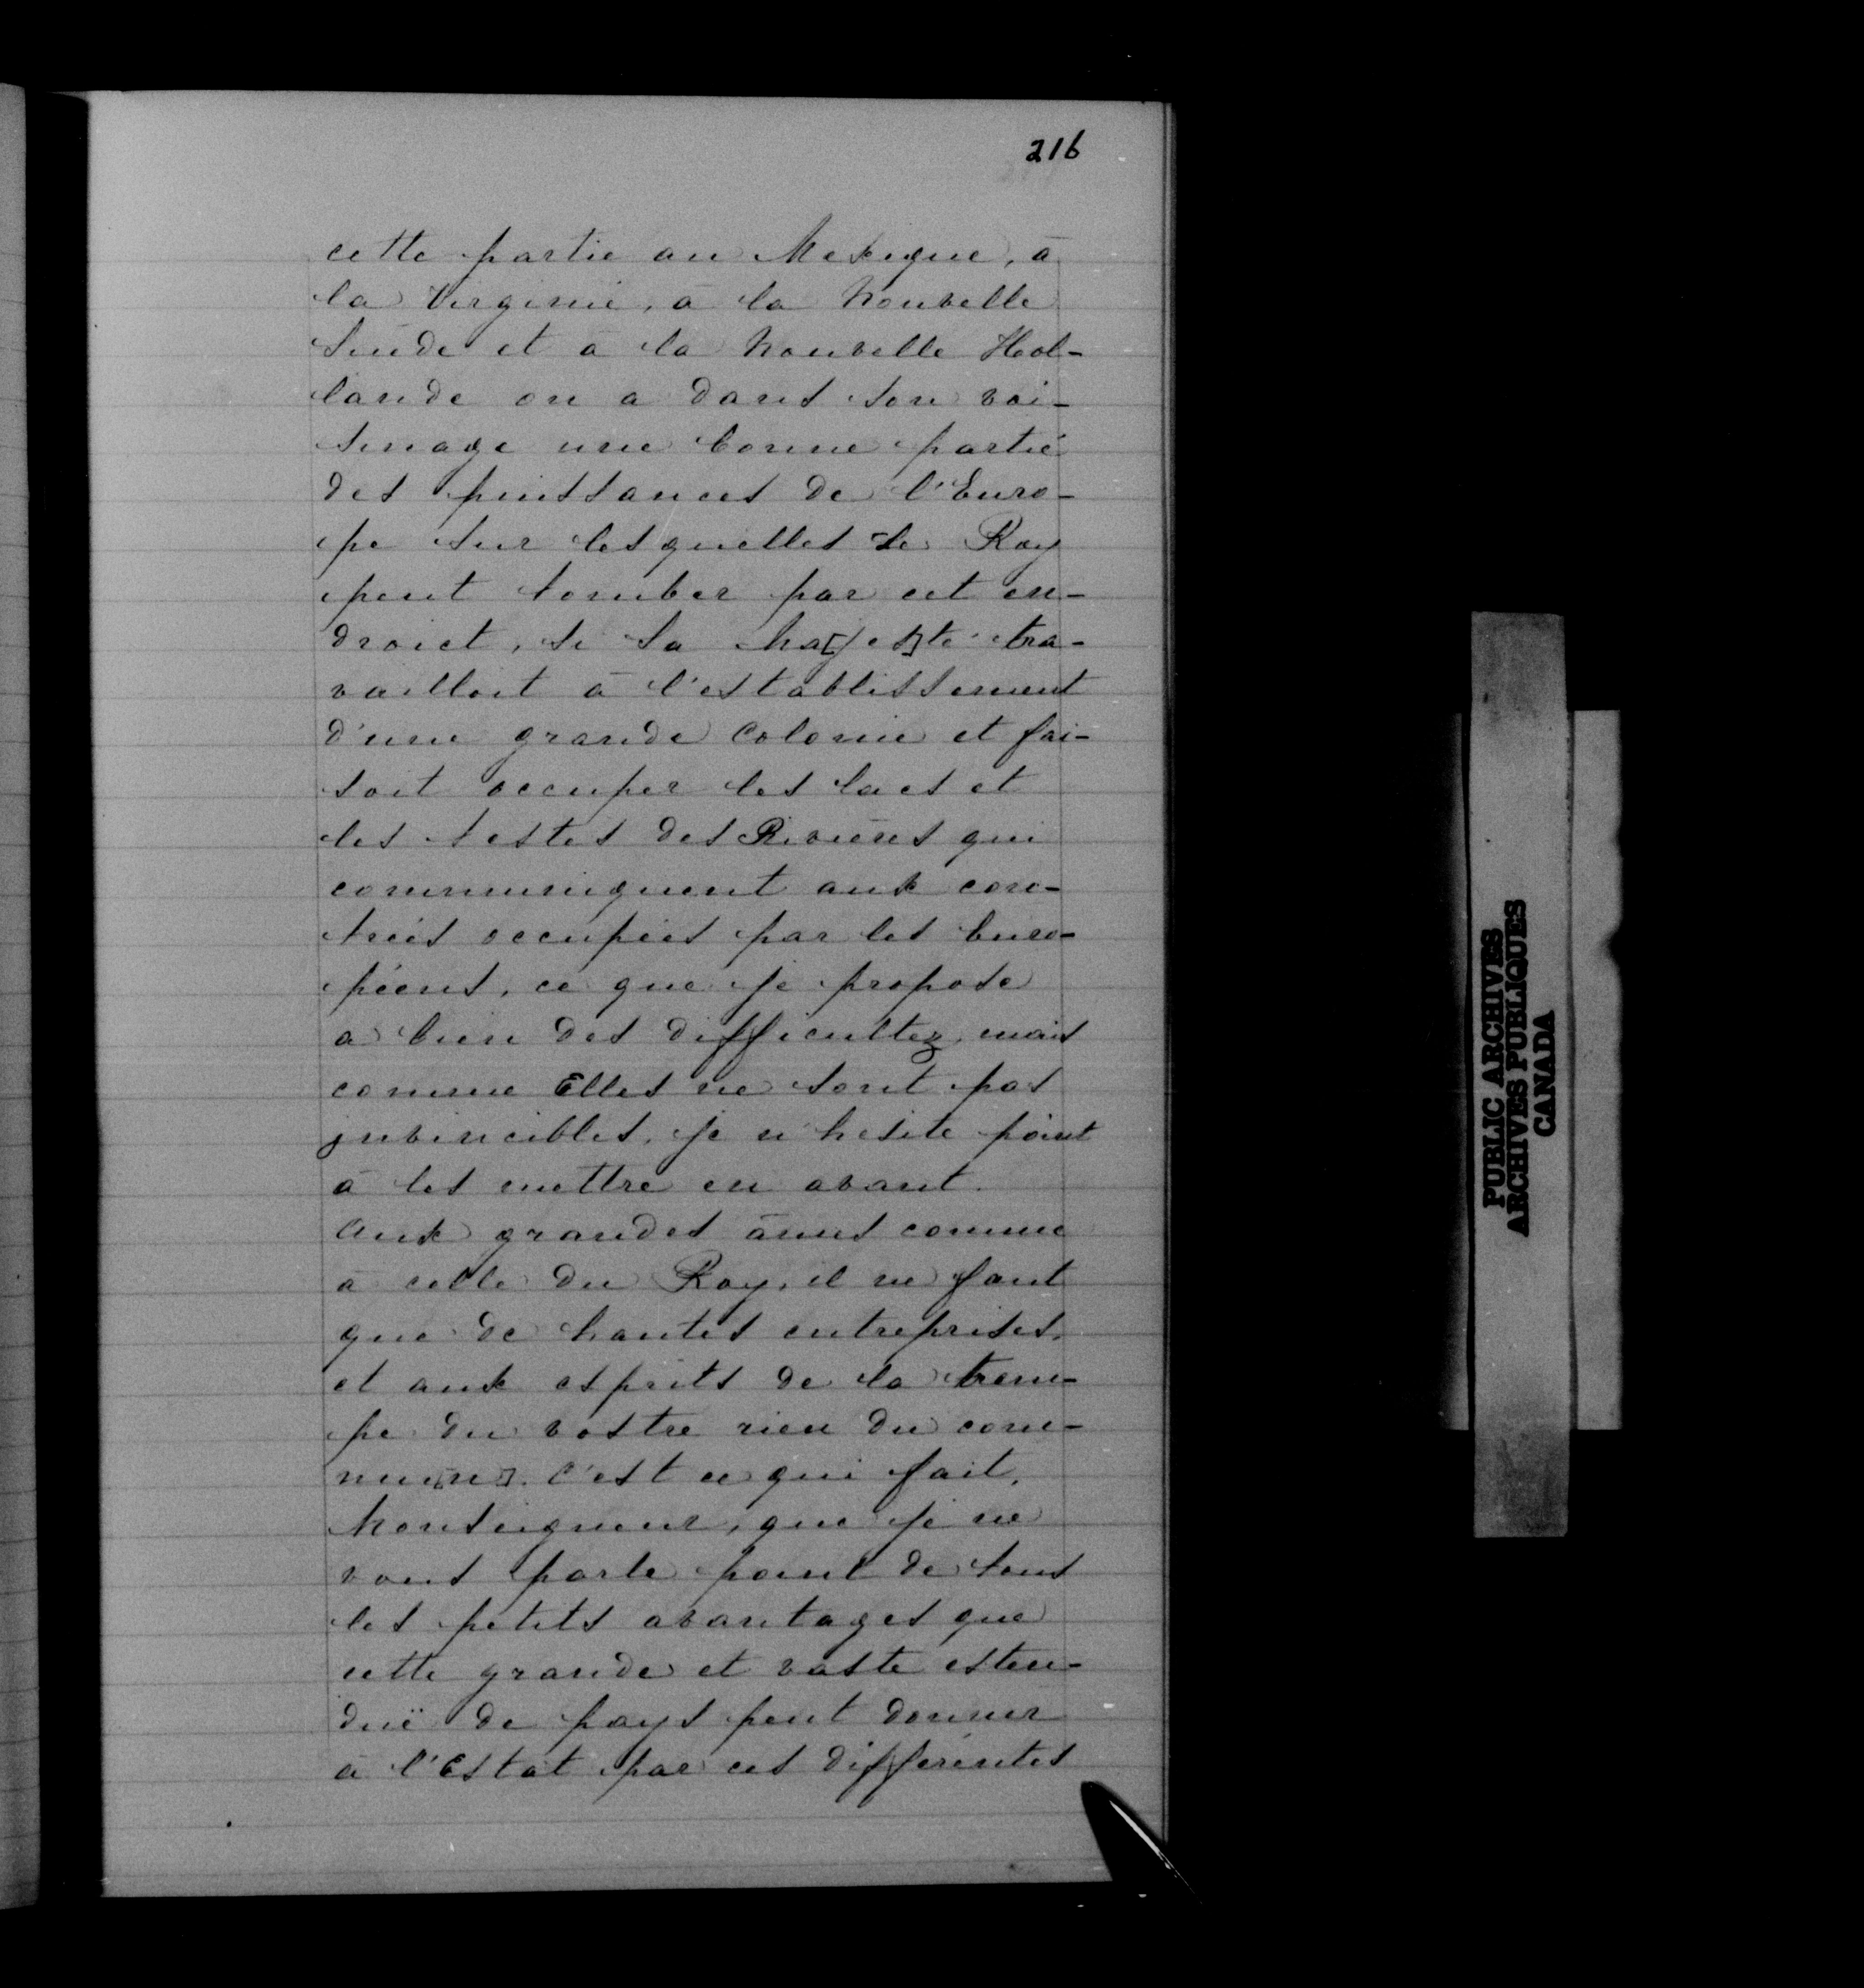 216
cette partie au Mexique, à
la Virginie, à la Nouvelle
Suède et à la Nouvelle Hol-
lande on a dans son voi-
sinage une bonne partie
des puissances de l'Euro-
pe sur lesquelles le Roy
peut tomber par cet en-
droict, si Sa Ma[jes]té tra-
vailloit à l'establissement
d'une grande Colonie et fai-
soit occuper les lacs et
les testes des Rivières qui
communiquent aux con-
trées occupées par les Euro-
péens, ce que je propose
a bien des difficultez, mais
comme Elles ne sont pas
jnvincibles, je n'hesite point
à les mettre en avant.
Aux grandes âmes comme
à celle du Roy, il ne faut
que de hautes entreprises,
et aux esprits de la trem-
pe du vostre rien du com-
mu[n]. C'est ce qui fait,
Monseigneur, que je ne
vous parle point de tous
les petits avantages que
cette grande et vaste esten-
duë de pays peut donner
à l'Estat par ces différentes
PUBLIC ARCHIVES
ARCHIVES PUBLIQUES
CANADA